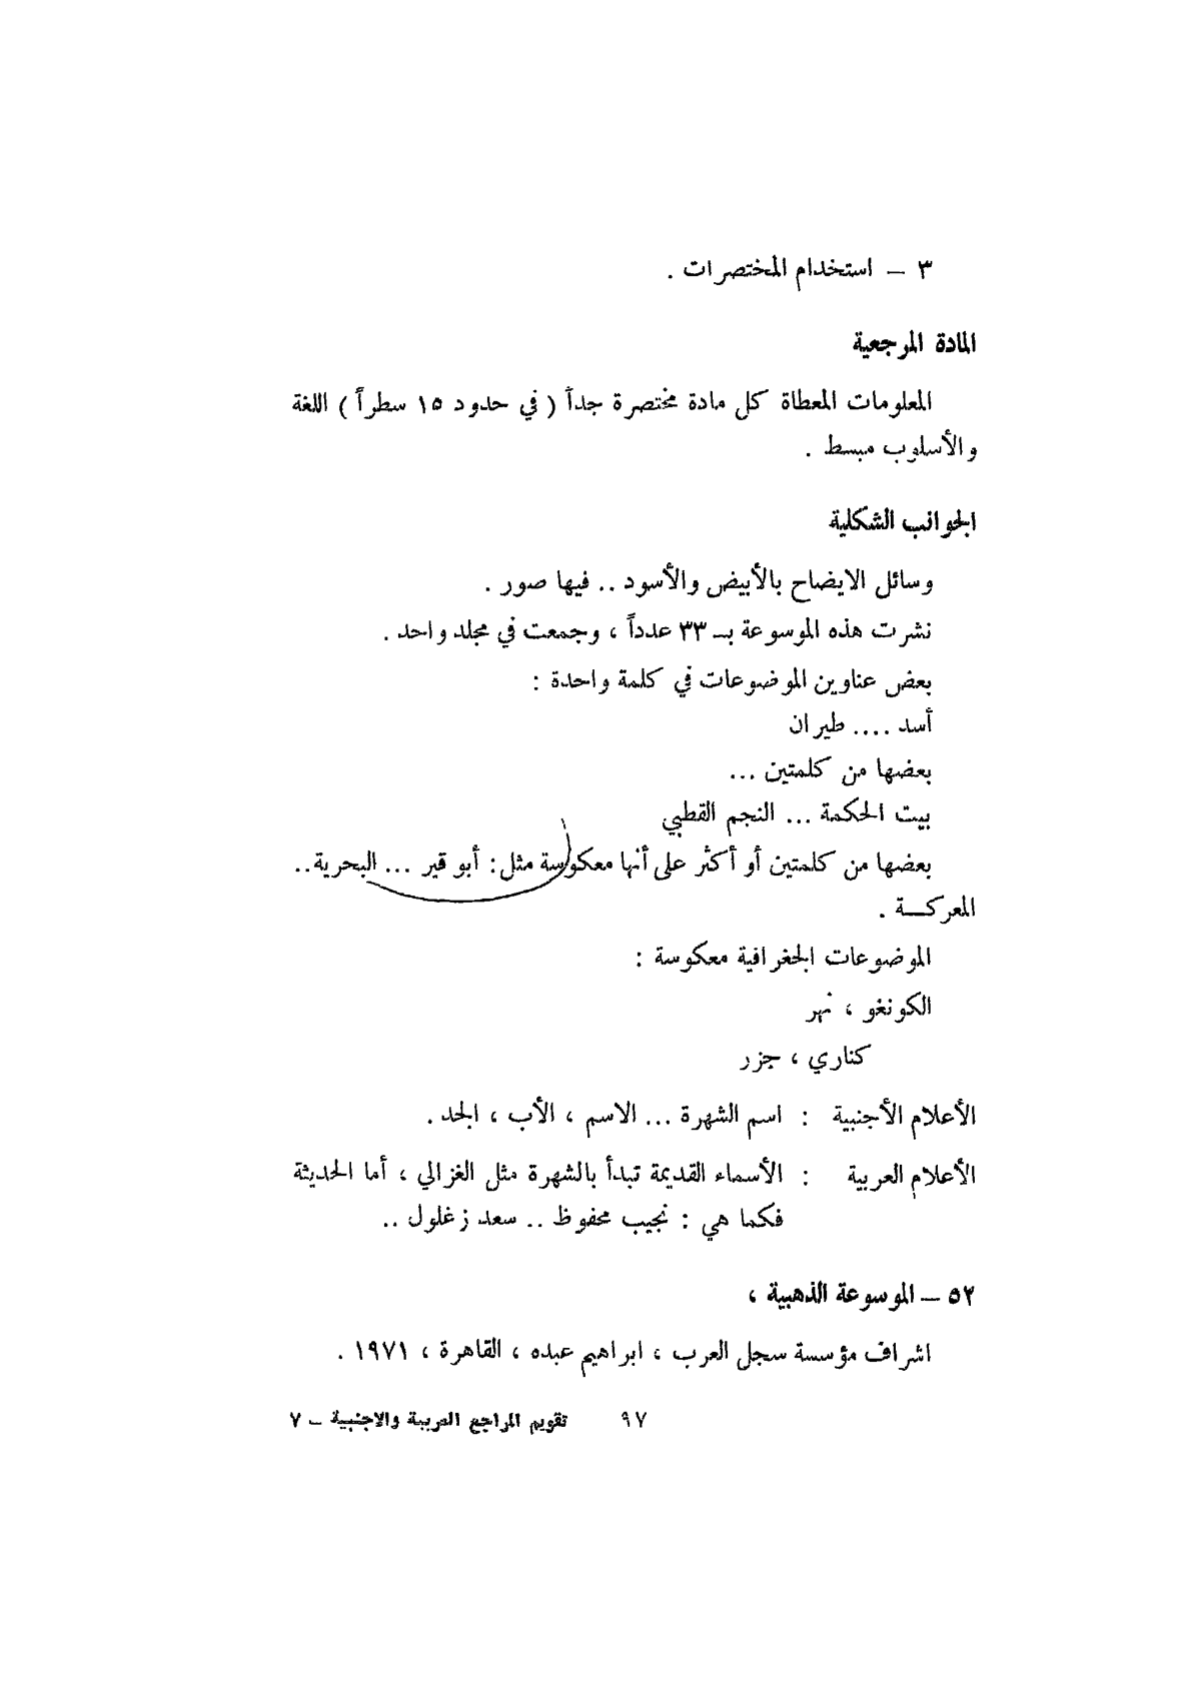 ٣ – استخدام المختصرات .
المادة المرجعية
المعلومات المعطاة كل مادة مختصرة جداً ( في حدود ١٥ سطراً ) اللغة
والأسلوب مبسط .
الجوانب الشكلية
وسائل الايضاح بالأبيض والأسود .. فيها صور .
نشرت هذه الموسوعة بـ ٣٣ عدداً ، وجمعت في مجلد واحد .
بعض عناوين الموضوعات في كلمة واحدة :
أسد .... طيران
بعضها من كلمتين ...
بيت الحكمة ... النجم القطبي
بعضها من كلمتين أو أكثر على أنها معكوسة مثل : أبو قير ... البحرية ..
المعركــة .
الموضوعات الجغرافية معكوسة :
الكونغو ، نهر
كناري ، جزر
الأعلام الأجنبية : اسم الشهرة ... الاسم ، الأب ، الجد .
الأعلام العربية : الأسماء القديمة تبدأ بالشهرة مثل الغزالي ، أما الحديثة
فكما هي : نجيب محفوظ .. سعد زغلول ..
٥٢ – الموسوعة الذهبية ،
اشراف مؤسسة سجل العرب ، ابراهيم عبده ، القاهرة ، ١٩٧١ .
٩٧ تقويم المراجع العربية والاجنبية – ٧